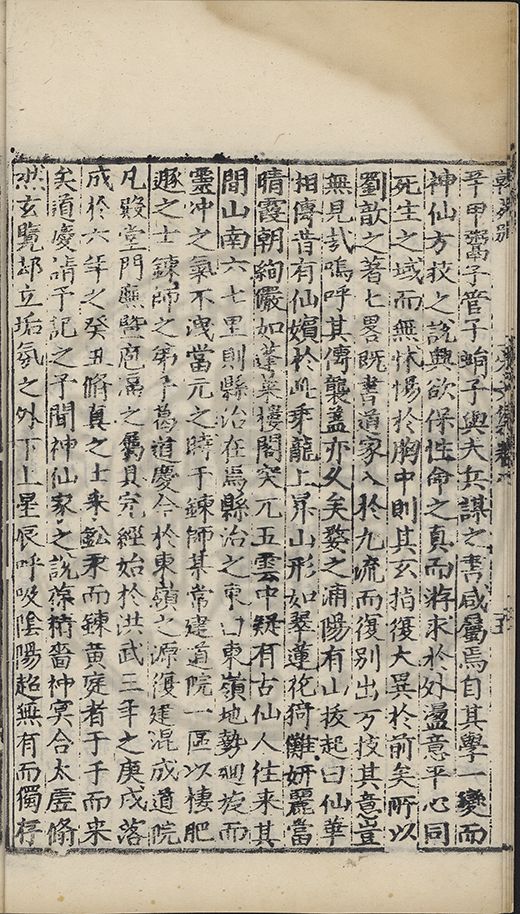 翰苑別
辛甲鬻子管子蜎子與夫兵謀之書咸屬焉自其學一變而
神仙方技之說興欲保性命之真而游求於外盪意平心同
死生之域而無怵惕於胸中則其玄指復大異於前矣所以
劉歆之著七畧既書道家入於九流而復別出方技其意豈
無見哉嗚呼其傳襲蓋亦久矣婺之浦陽有山拔起曰仙華
相傳昔有仙嬪於此乘龍上昇山形如翠蓮花猗儺妍麗當
晴霞朝絢儼如蓬萊樓閣突兀五雲中疑有古仙人往來其
間山南六七里則縣治在焉縣治之東曰東嶺地勢迴旋而
靈冲之氣不洩當元之時于鍊師某常建道院一區以棲肥
遯之士鍊師之弟子葛道慶今於東嶺之源復建混成道院
凡殿堂門廡暨庖湢之屬具完經始於洪武三年之庚戌落
成於六年之癸丑脩真之士来鈆汞而鍊黄庭者于于而来
矣道慶請予記之予聞神仙家之說葆精嗇神冥合太虛翛
然玄覽却立垢氛之外下上星辰呼吸陰陽超無有而獨存